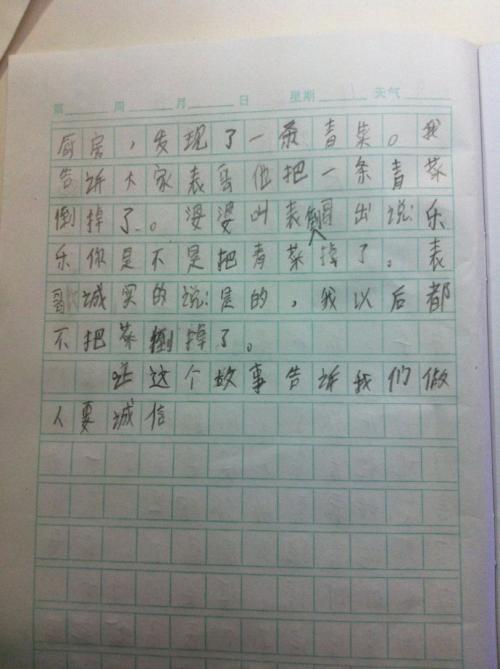 第 周 月 日 星期 天气
厨房，发现了一条青菜。我
告诉大家表哥他把一条青菜
倒掉了。婆婆叫表哥出说：乐
乐你是不是把青菜倒掉了。表
哥城实的说：是的，我以后都
不把菜倒掉了。
这个故事告诉我们做
人要诚信